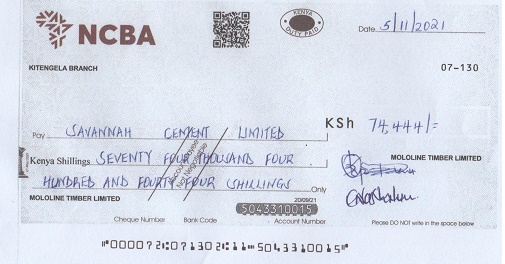 NCBA
KENYA
DUTY PAID
Date 5/11/2021
KITENGELA BRANCH
07-130
Pay SAVANNAH CEMENT LIMITED KSh 74,444/=
Kenya Shillings SEVENTY FOUR THOUSAND FOUR
HUNDRED AND FOURTY FOUR SHILLINGS Only
Account Payee
Not Negotiable
MOLOLINE TIMBER LIMITED
MOLOLINE TIMBER LIMITED
20/09/21
5043310015
Cheque Number Bank Code Account Number
Please DO NOT write in the space below
"000072:071302:11"5043310015"